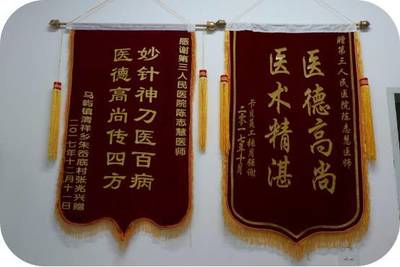 感谢第三人民医院陈志慧医师
妙针神刀医百病
医德高尚传四方
马屿镇清祥乡朱谷底村张兆兴赠
二〇一七年十二月十一日
赠第三人民医院陈志慧医师
医德高尚
医术精湛
员工张
二零一七年十月